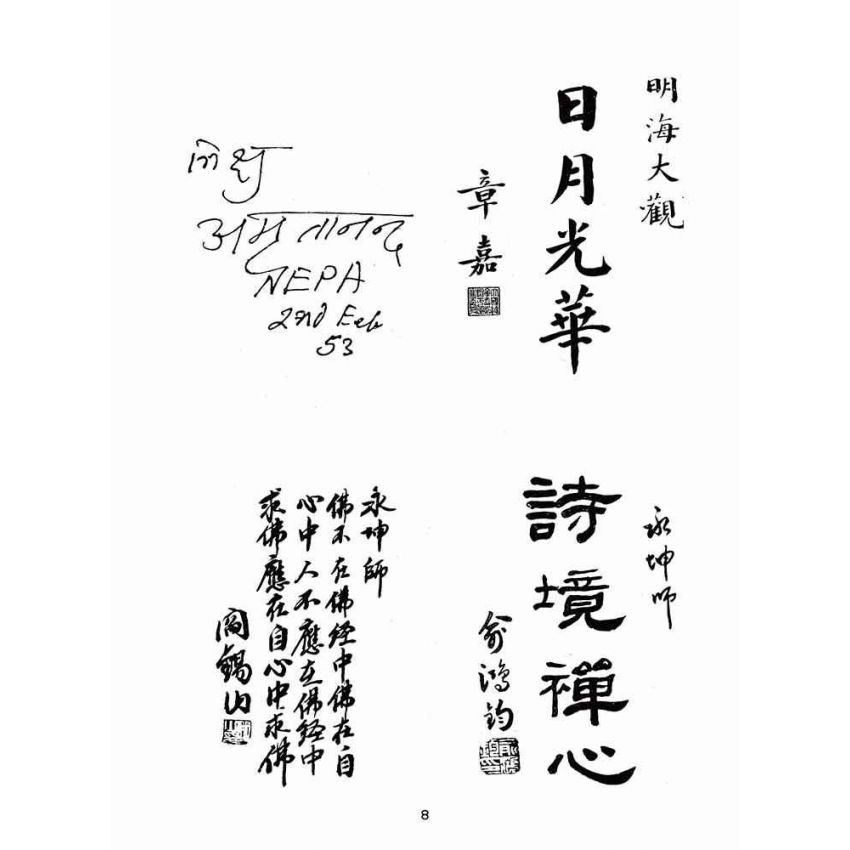 明海大觀
日月光華
章嘉
भिक्षु
अमृतानन्द
NEPA
2nd Feb
53
永坤師
詩境禪心
俞鴻鈞
永坤師
佛不在佛經中佛在自
心中人不應在佛經中
求佛應在自心中求佛
閻錫山
8